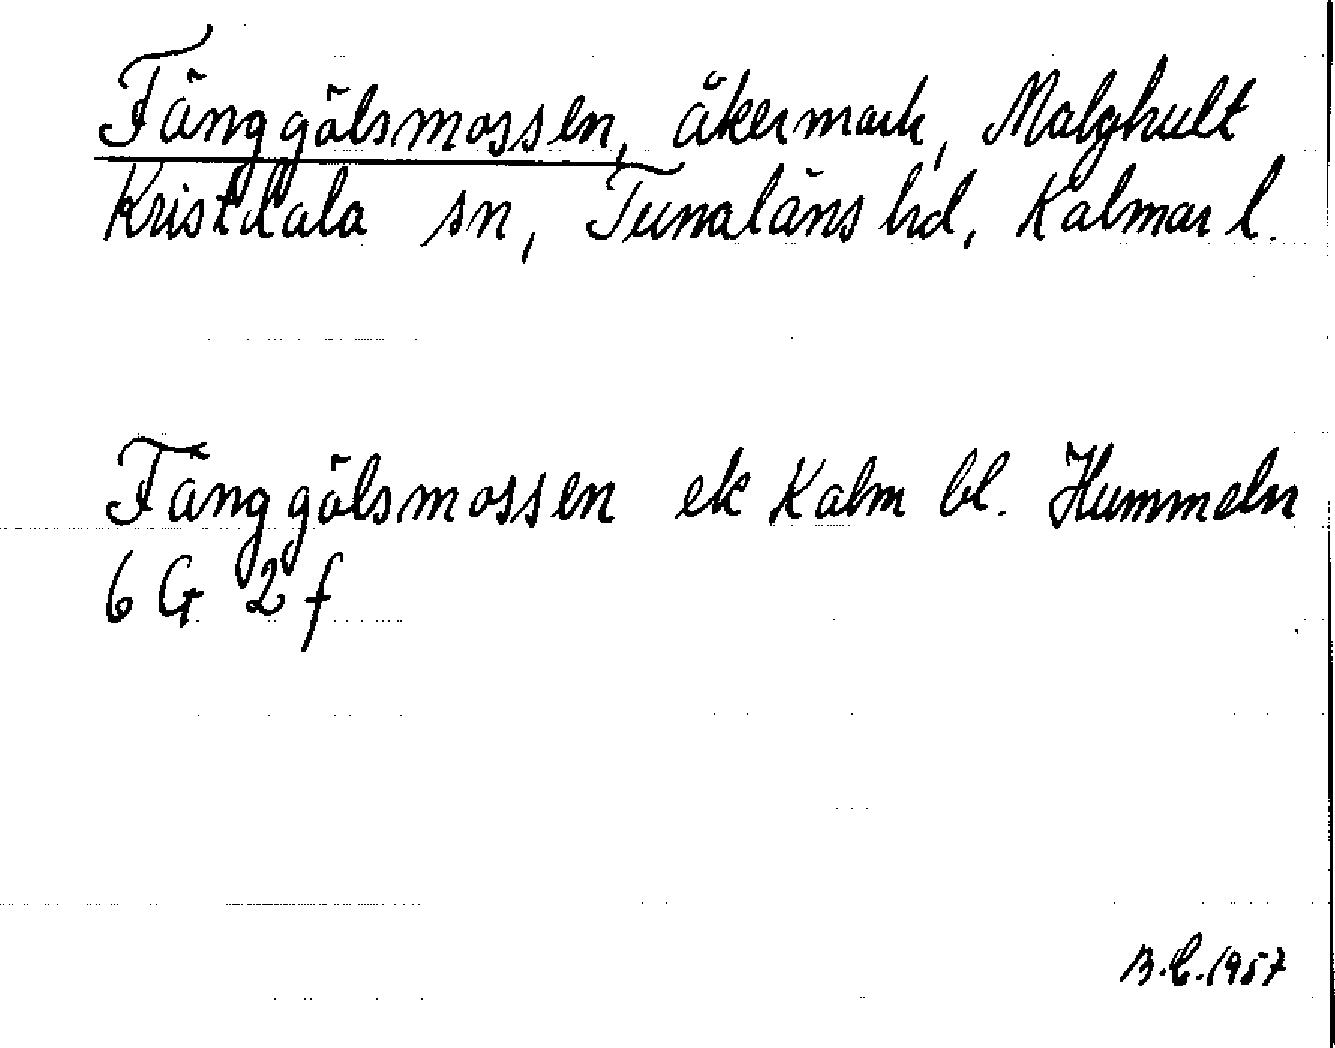 Fänggölsmossen, åkermark, Malghult
Kristdala sn, Tunaläns hd, Kalmar l.
Fänggölsmossen ek Kalm bl. Hummeln
6 G 2 f
B.C. 1957